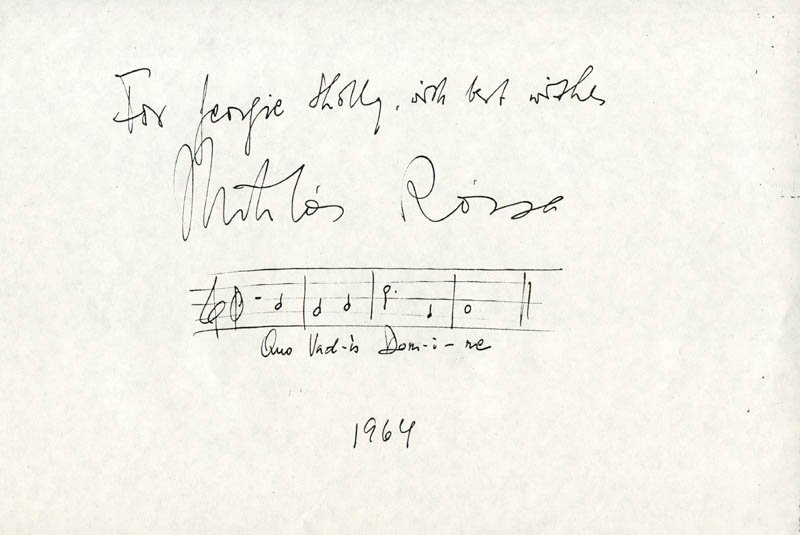 For Georgie Holly, with best wishes
Miklós Rózsa
Quo Vad-is Dom-i-ne
1964